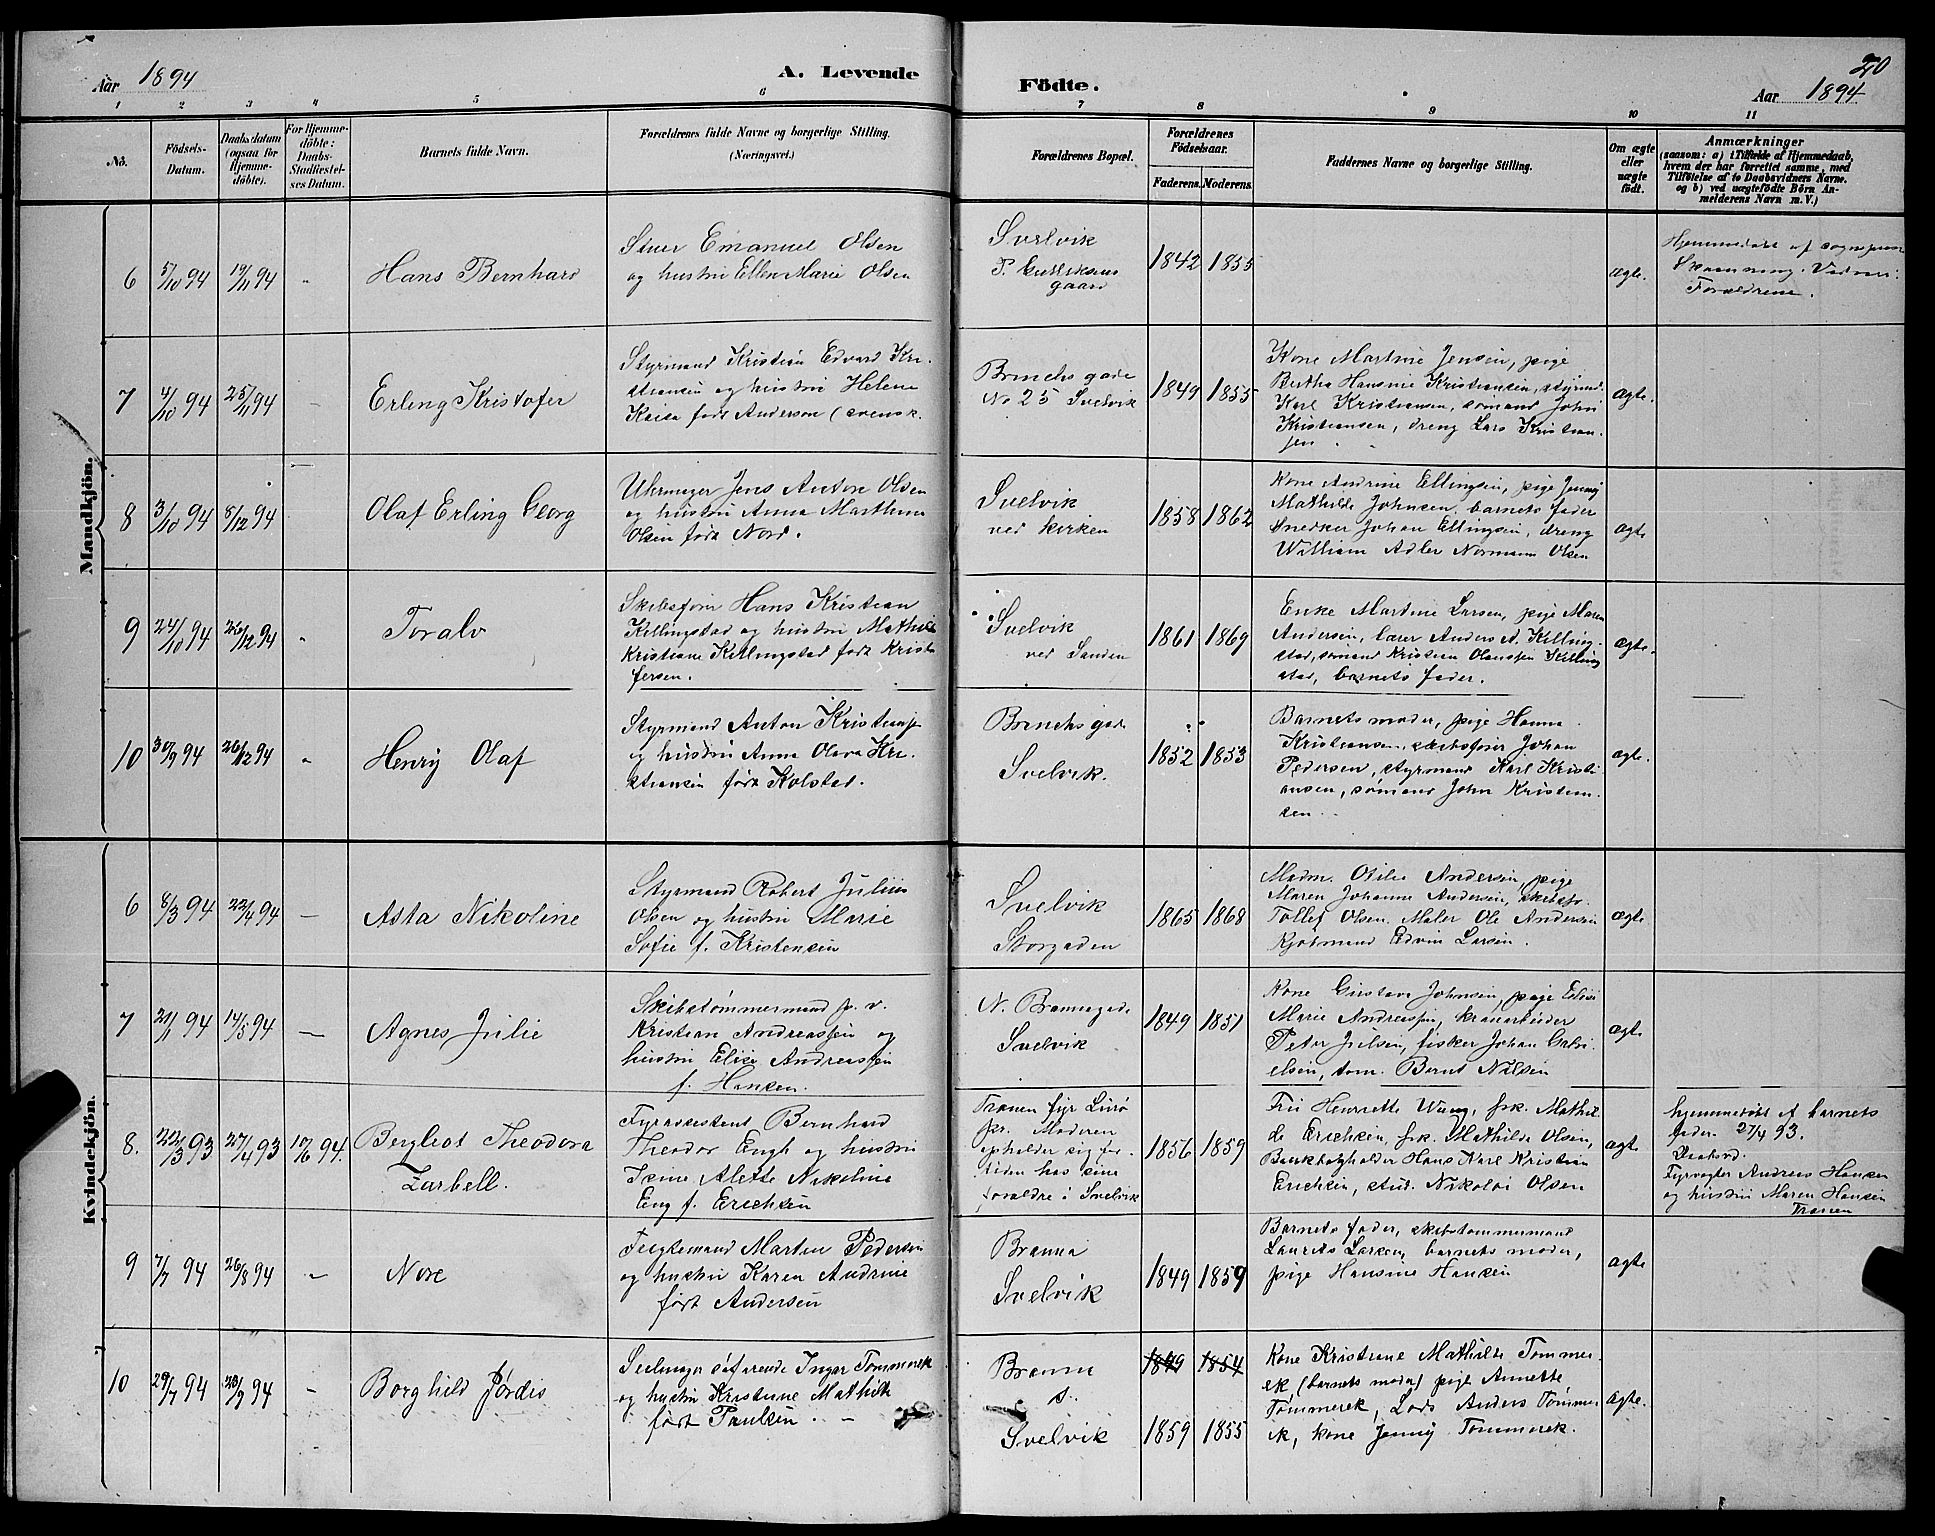 20
Aar 1894
A. Levende
Födte.
Aar 1894
1 2 3 4 5 6 7 8 9 10 11
No.
Födsels-
Datum.
Daabsdatum
(ogsaa for
Hjemme-
döbte).
For Hjemme-
döbte:
Daabs-
Stadfæstel-
ses Datum.
Barnets fulde Navn.
Forældrenes fulde Navne og borgerlige Stilling.
(Næringsvei.)
Forældrenes Bopæl.
Forældrenes
Födselsaar.
Faderens. Moderens.
Faddernes Navne og borgerlige Stilling.
Om ægte
eller
uægte
födt.
Anmærkninger
(saasom: a) i Tilfælde af Hjemmedaab,
hvem der har forrettet samme, med
Tilföielse af to Daabsvidners Navne,
og b) ved uægtefödte Börn An-
melderens Navn m. V.)
Mandkjön.
6
5/10 94
19/11 94
Hans Bernhard
Stuer Emanuel Olsen
og hustru Ellen Marie Olsen
Svelvik
P. Gulliksens
gaard
1842 1855
ægte.
Hjemmedøbt af sogneprest
Skaanning. Vidner:
Forældrene.
7
4/10 94
25/11 94
–
Erling Kristofer
Styrmand Kristian Edvard Kri-
stiansen og hustru Helene
Kaisa født Anderson (svensk.
Brinchs gade
No 25 Svelvik
1849 1855
Kone Martine Jensen, pige
Bertha Hansine Kristiansen, styrmd.
Karl Kristiansen, sømand John
Kristiansen, dreng Lars Kristian-
sen
ægte.
8
3/10 94
8/12 94
Olaf Erling Georg
Uhrmager Jens Anton Olsen
og hustru Anna Marthine
Olsen født Nord.
Svelvik
ved kirken
1858 1862
Kone Andrine Ellingsen, pige Jenny
Mathilde Johnsen, barnets fader
snedker Johan Ellingsen, dreng
William Adler Normann Olsen
ægte
9
24/10 94
23/12 94
Toralv
Skibsfører Hans Kristian
Killingstad og hustru Mathilde
Kristiane Killingstad født Kristo
fersen.
Svelvik
ved Sanden
1861 1869
Enke Martine Larsen, pige Maren
Andersen, lærer Anders A. Killing-
stad, sømand Kristian Olaussen Killing
stad, barnets fader.
ægte.
10
30/9 94
26/12 94
Henry Olaf
Styrmand Anton Kristiansen
og hustru Anna Olava Kri-
stiansen født Kolstad.
Brinchs gade
Svelvik.
1852 1853
Barnets moder, pige Hanna
Kristiansen, skibsfører Johan
Pedersen, styrmand Karl Kristi-
ansen, sømand John Kristian-
sen.
ægte.
Kvindekjön.
6
8/3 94
22/4 94
–
Asta Nikoline
Styrmand Robert Julius
Olsen og hustru Marie
Sofie f. Kristensen
Svelvik
Storgaden
1865 1868
Madm. Otilie Andersen, pige
Maren Johanne Andersen, skibsfr.
Tollef Olsen, Maler Ole Andersen
Kjøbmand Edvin Larsen.
ægte
7
21/1 94
14/5 94
–
Agnes Julie
Skibstømmermand p. v.
Kristian Andreassen og
hustru Elise Andreassen
f. Hansen.
N. Brannagade
Svelvik
1849 1851
Kone Gustava Johnsen, pige Elise
Marie Andreassen, kranarbeider
Peter Julsen, fisker Johan Gabri-
elsen, tom. Bernt Nilsen
ægte
8.
22/3 93
27/4 93
10/6 94.
Bergliot Theodora
Zarbell.
Fyrassistent Bernhard
Theodor Engh og hustru
Trine Alette Nikoline
Eng f. Erichsen
Tranen fyr
pr. Moderen
opholder sig for
tiden hos sine
forældre i Svelvik
1856 1859
Fru Henriette Wang, frk. Mathil
de Erichsen, frk. Mathilde Olsen,
Bankbogholder Hans Karl Kristian
Erichsen, stud. Nikolai Olsen
ægte
hjemmedøbt af barnets
fader 27/4 93.
Fyrvogter Andreas Hansen
og hustru Maren Hansen
Tranen
9
7/7 94
26/8 94
–
Nore
Fragtemand Martin Pedersen
og hustru Karen Andrine
født Andersen
Branna
Svelvik
1849 1859
Barnets fader, skibstømmermand
Laurits Larsen, barnets moder,
pige Hansine Hansen
ægte
10
29/7 94
–
Borghild Jørdis
Seilmager søfarende Ingar Tømmerek
og hustru Kristiane Mathilde
født Paulsen. –
Branna
s.
Svelvik
1849 1854
1859 1855
Kone Kristiane Mathilde Tømmer-
ek (barnets moder) pige Annette
Tømmerek, Lods Anders Tømmer
ek, kone Jenny Tømmerek.
ægte.